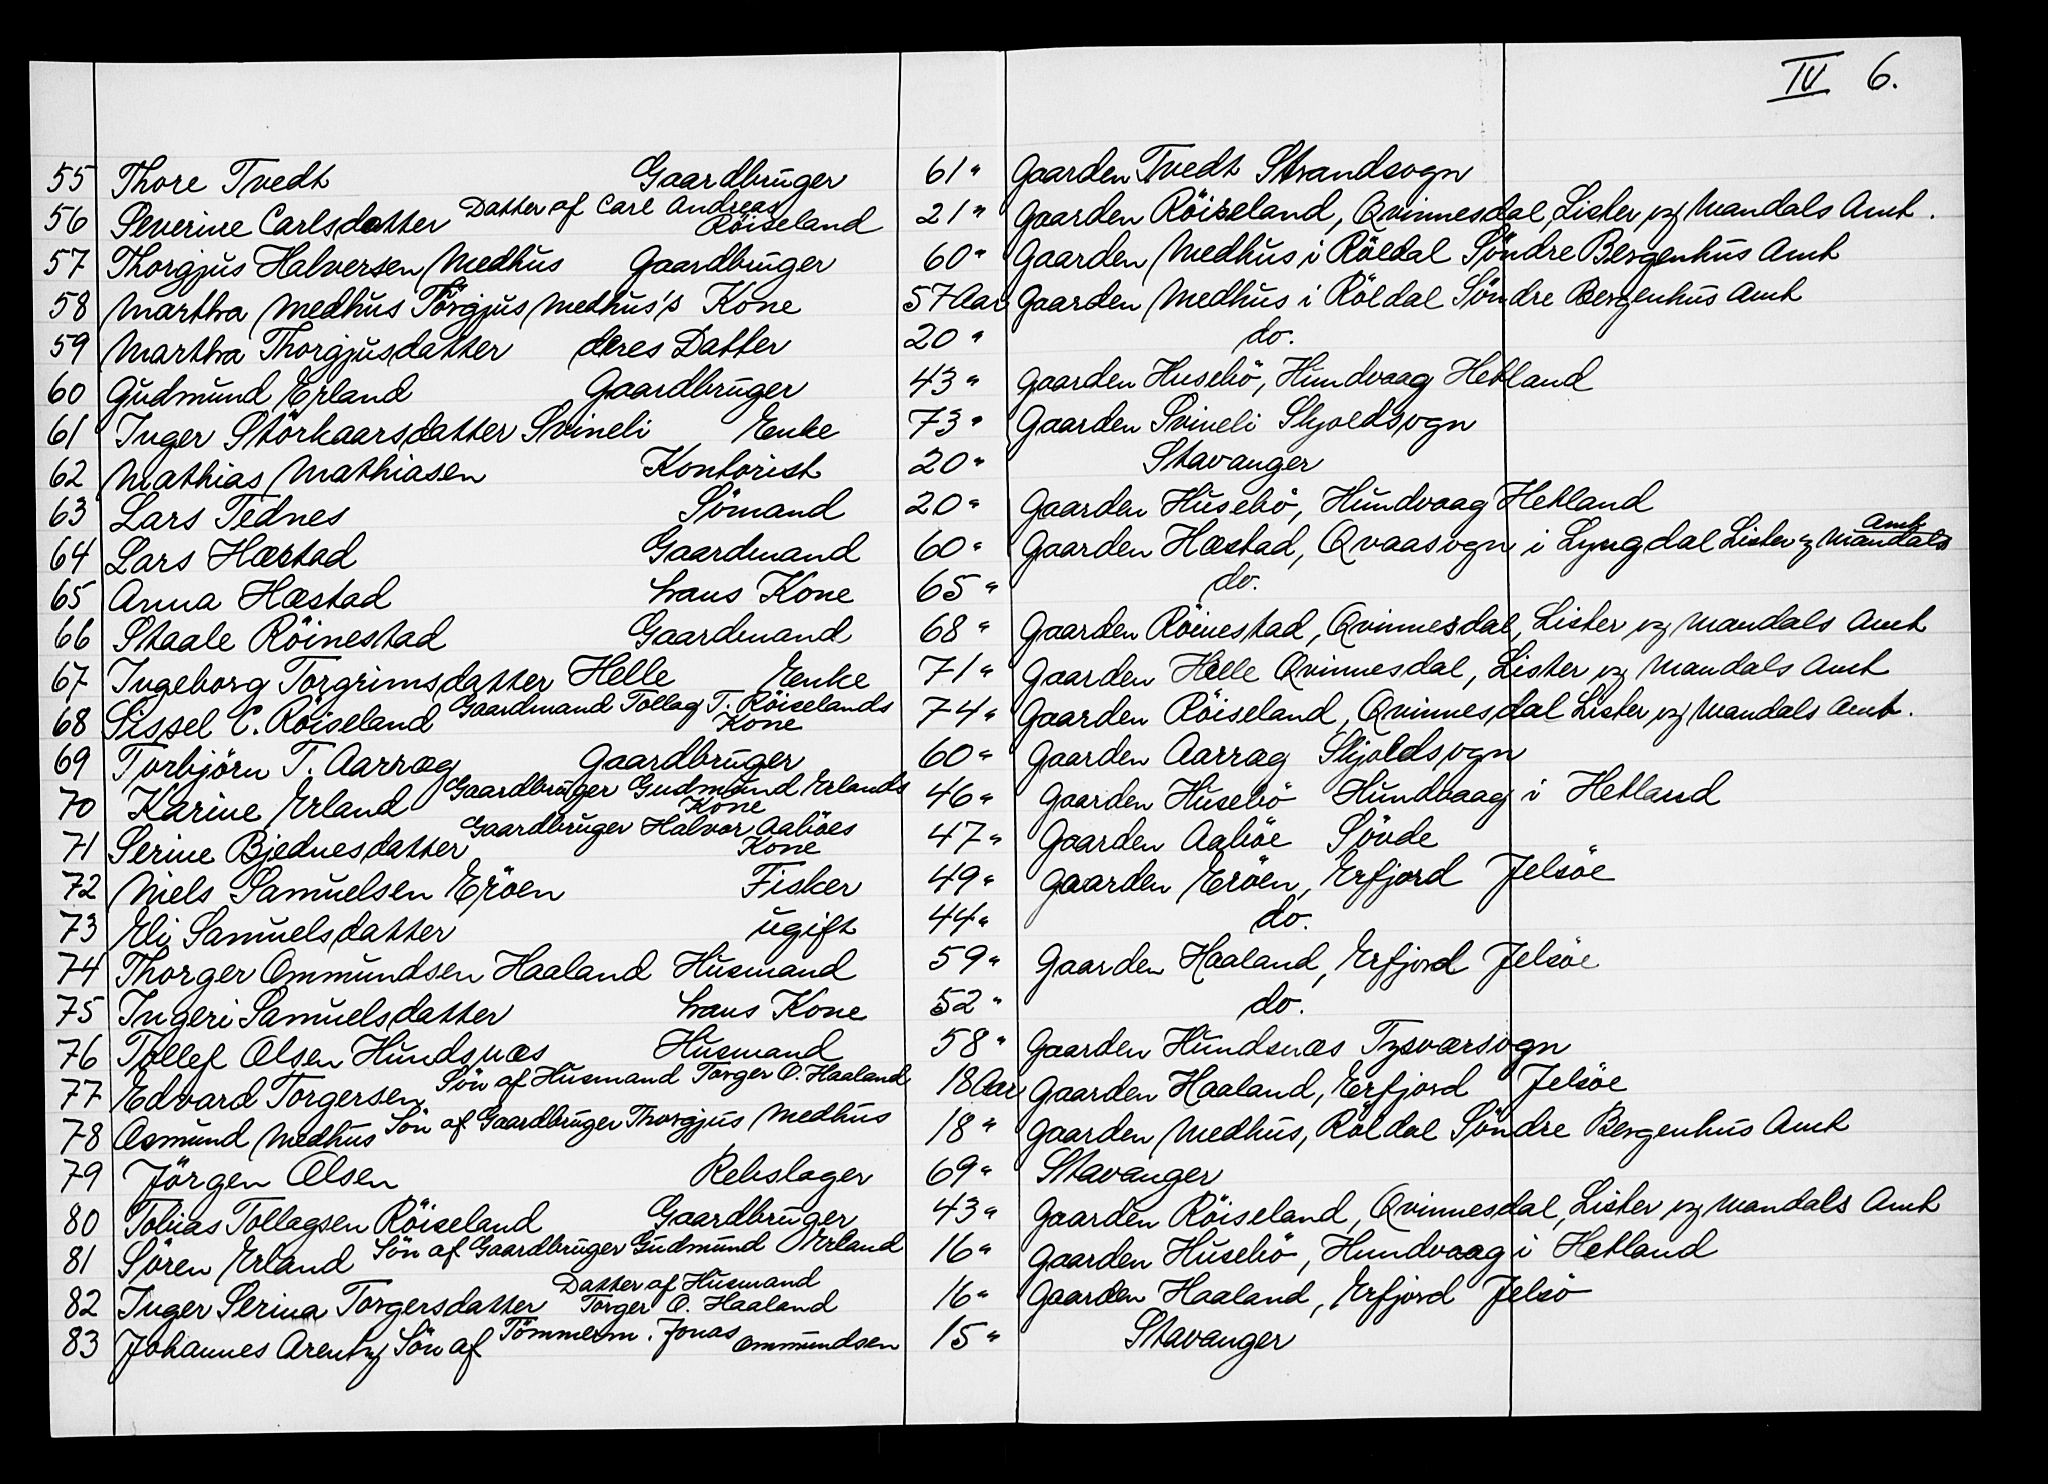 IV 6.
55 Thore Tvedt Gaardbruger 61" Gaarden Tvedt Strandsogn
56 Severine Carlsdatter Datter af Carl Andreas Röiseland 21" Gaarden Röiseland, Qvinnesdal, Lister og Mandals Amt.
57 Thorgjus Halversen Medhus Gaardbruger 60" Gaarden Medhus i Röldal Söndre Bergenhus Amt
58 Martha Medhus Törgjus Medhus's Kone 57 Aar Gaarden Medhus i Röldal Söndre Bergenhus Amt
59 Martha Thorgjusdatter deres Datter 20" do.
60 Gudmund Erland Gaardbruger 43" Gaarden Husebö, Hundvaag Hetland
61 Inger Störkaarsdatter Svineli Enke 73" Gaarden Svineli Skjoldsogn
62 Mathias Mathiasen Kontorist 20" Stavanger
63 Lars Tednes Sömand 20" Gaarden Husebö, Hundvaag Hetland
64 Lars Hæstad Gaardmand 60" Gaarden Hæstad, Qvaasogn i Lyngdal Lister og Mandals Amt
65 Anna Hæstad hans Kone 65" do.
66 Staale Röinestad Gaardmand 68" Gaarden Röinestad, Qvinnesdal, Lister og Mandals Amt
67 Ingeborg Torgrimsdatter Helle Enke 71" Gaarden Helle Qvinnesdal, Lister og Mandals Amt
68 Sissel C. Röiseland Gaardmand Tollag T. Röiselands Kone 74" Gaarden Röiseland, Qvinnesdal Lister og Mandals Amt.
69 Torbjörn T. Aarrag Gaardbruger 60" Gaarden Aarrag Skjoldsogn
70 Karine Erland Gaardbruger Gudmund Erlands Kone 46" Gaarden Husebö Hundvaag i Hetland
71 Serine Bjednesdatter Gaardbruger Halvor Aaböes Kone 47" Gaarden Aaböe Sövde
72 Niels Samuelsen Eröen Fisker 49" Gaarden Eröen, Erfjord Jelsöe
73 Eli Samuelsdatter ugift 44" do.
74 Thorger Ommundsen Haaland Husmand 59" Gaarden Haaland, Erfjord Jelsöe
75 Ingeri Samuelsdatter hans Kone 52" do.
76 Tollef Olsen Hundsnæs Husmand 58" Gaarden Hundsnæs Tysværsogn
77 Edvard Torgersen Sön af Husmand Torger O. Haaland 18 Aar Gaarden Haaland, Erfjord Jelsöe
78 Asmund Medhus Sön af Gaardbruger Thorgjus Medhus 18" Gaarden Medhus, Röldal Söndre Bergenhus Amt
79 Jörgen Olsen Rebslager 69" Stavanger
80 Tobias Tollagsen Röiseland Gaardbruger 43" Gaarden Röiseland, Qvinnesdal, Lister og Mandals Amt
81 Sören Erland Sön af Gaardbruger Gudmund Erland 16" Gaarden Husebö, Hundvaag i Hetland
82 Inger Serina Torgersdatter Datter af Husmand Torger O. Haaland 16" Gaarden Haaland, Erfjord Jelsö
83 Johannes Arentz Sön af Tömmerm. Jonas Ommundsen 15" Stavanger